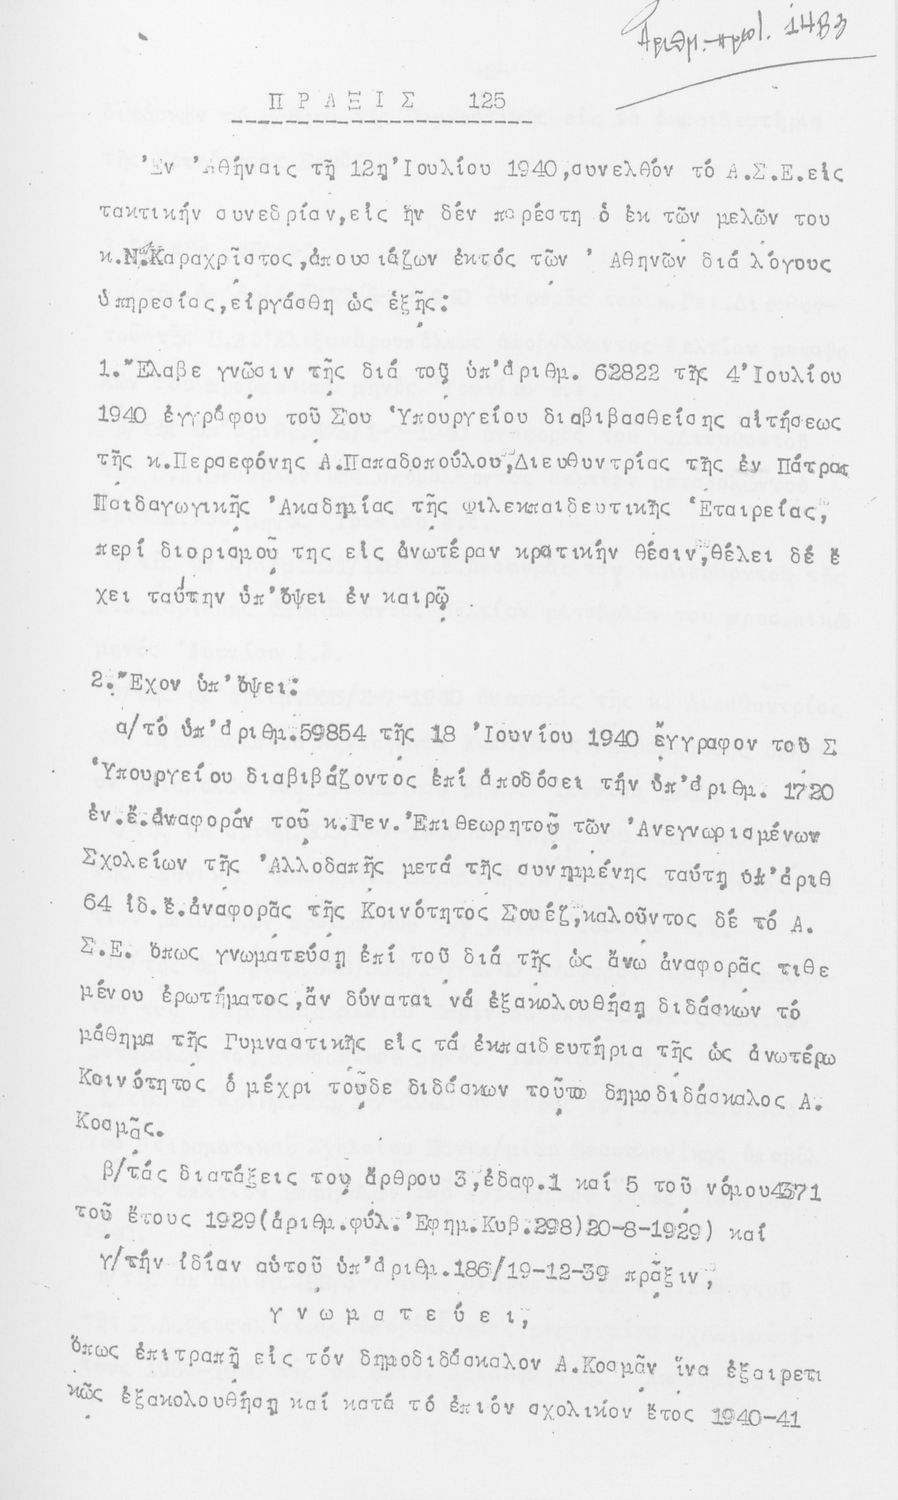 Αριθμ.-πρωτ. 1483
Π Ρ Α Ξ Ι Σ 125
Ἐν Ἀθήναις τῇ 12ῃ Ἰουλίου 1940,συνελθόν τό Α.Σ.Ε.εἰς
τακτικήν συνεδρίαν,εἰς ἥν δέν παρέστη ὁ ἐκ τῶν μελῶν του
κ.Ν.Καραχρῖστος,ἀπουσιάζων ἐκτός τῶν Ἀθηνῶν διά λόγους
ὑπηρεσίας,εἰργάσθη ὡς ἑξῆς:
1.Ἔλαβε γνῶσιν τῆς διά τοῦ ὑπ'ἀριθμ. 62822 τῆς 4 Ἰουλίου
1940 ἐγγράφου τοῦ Σου Ὑπουργείου διαβιβασθείσης αἰτήσεως
τῆς κ.Περσεφόνης Α.Παπαδοπούλου,Διευθυντρίας τῆς ἐν Πάτραις
Παιδαγωγικῆς Ἀκαδημίας τῆς Φιλεκπαιδευτικῆς Ἑταιρείας,
περί διορισμοῦ της εἰς ἀνωτέραν κρατικήν θέσιν,θέλει δέ ἔ
χει ταύτην ὑπ'ὄψει ἐν καιρῷ.
2.Ἔχον ὑπ'ὄψει:
α/τό ὑπ'ἀριθμ.59854 τῆς 18 Ἰουνίου 1940 ἔγγραφον τοῦ Σ
Ὑπουργείου διαβιβάζοντος ἐπί ἀποδόσει τήν ὑπ'ἀριθμ. 1720
ἐν.ἔ.ἀναφοράν τοῦ κ.Γεν.Ἐπιθεωρητοῦ τῶν Ἀνεγνωρισμένων
Σχολείων τῆς Ἀλλοδαπῆς μετά τῆς συνημμένης ταύτῃ ὑπ'ἀριθ
64 ἰδ.ἔ.ἀναφορᾶς τῆς Κοινότητος Σουέζ,καλοῦντος δέ τό Α.
Σ.Ε. ὅπως γνωματεύσῃ ἐπί τοῦ διά τῆς ὡς ἄνω ἀναφορᾶς τιθε
μένου ἐρωτήματος,ἄν δύναται νά ἐξακολουθήσῃ διδάσκων τό
μάθημα τῆς Γυμναστικῆς εἰς τά ἐκπαιδευτήρια τῆς ὡς ἀνωτέρω
Κοινότητος ὁ μέχρι τοῦδε διδάσκων τοῦτο δημοδιδάσκαλος Α.
Κοσμᾶς.
β/τάς διατάξεις τοῦ ἄρθρου 3,ἐδαφ.1 καί 5 τοῦ νόμου4371
τοῦ ἔτους 1929(ἀριθμ.φύλ.Ἐφημ.Κυβ.298)20-8-1929) καί
γ/τήν ἰδίαν αὐτοῦ ὑπ'ἀριθμ.186/19-12-39 πρᾶξιν,
γ ν ω μ α τ ε ύ ε ι,
ὅπως ἐπιτραπῇ εἰς τόν δημοδιδάσκαλον Α.Κοσμᾶν ἵνα ἐξαιρετι
κῶς ἐξακολουθήσῃ καί κατά τό ἐπιόν σχολικόν ἔτος 1940-41